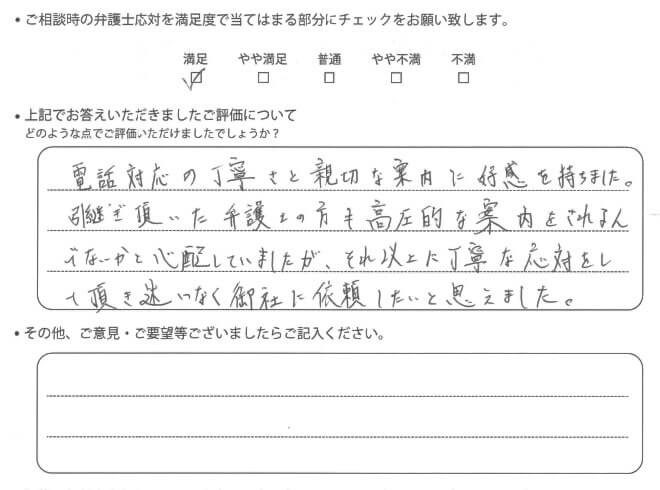 • ご相談時の弁護士応対を満足度で当てはまる部分にチェックをお願い致します。
満足 やや満足 普通 やや不満 不満
• 上記でお答えいただきましたご評価について
どのような点でご評価いただけましたでしょうか？
電話対応の丁寧さと親切な案内に好感を持ちました。
引継ぎ頂いた弁護士の方も高圧的な案内をされるん
でないかと心配していましたが、それ以上に丁寧な応対をし
て頂き迷いなく御社に依頼したいと思えました。
• その他、ご意見・ご要望等ございましたらご記入ください。